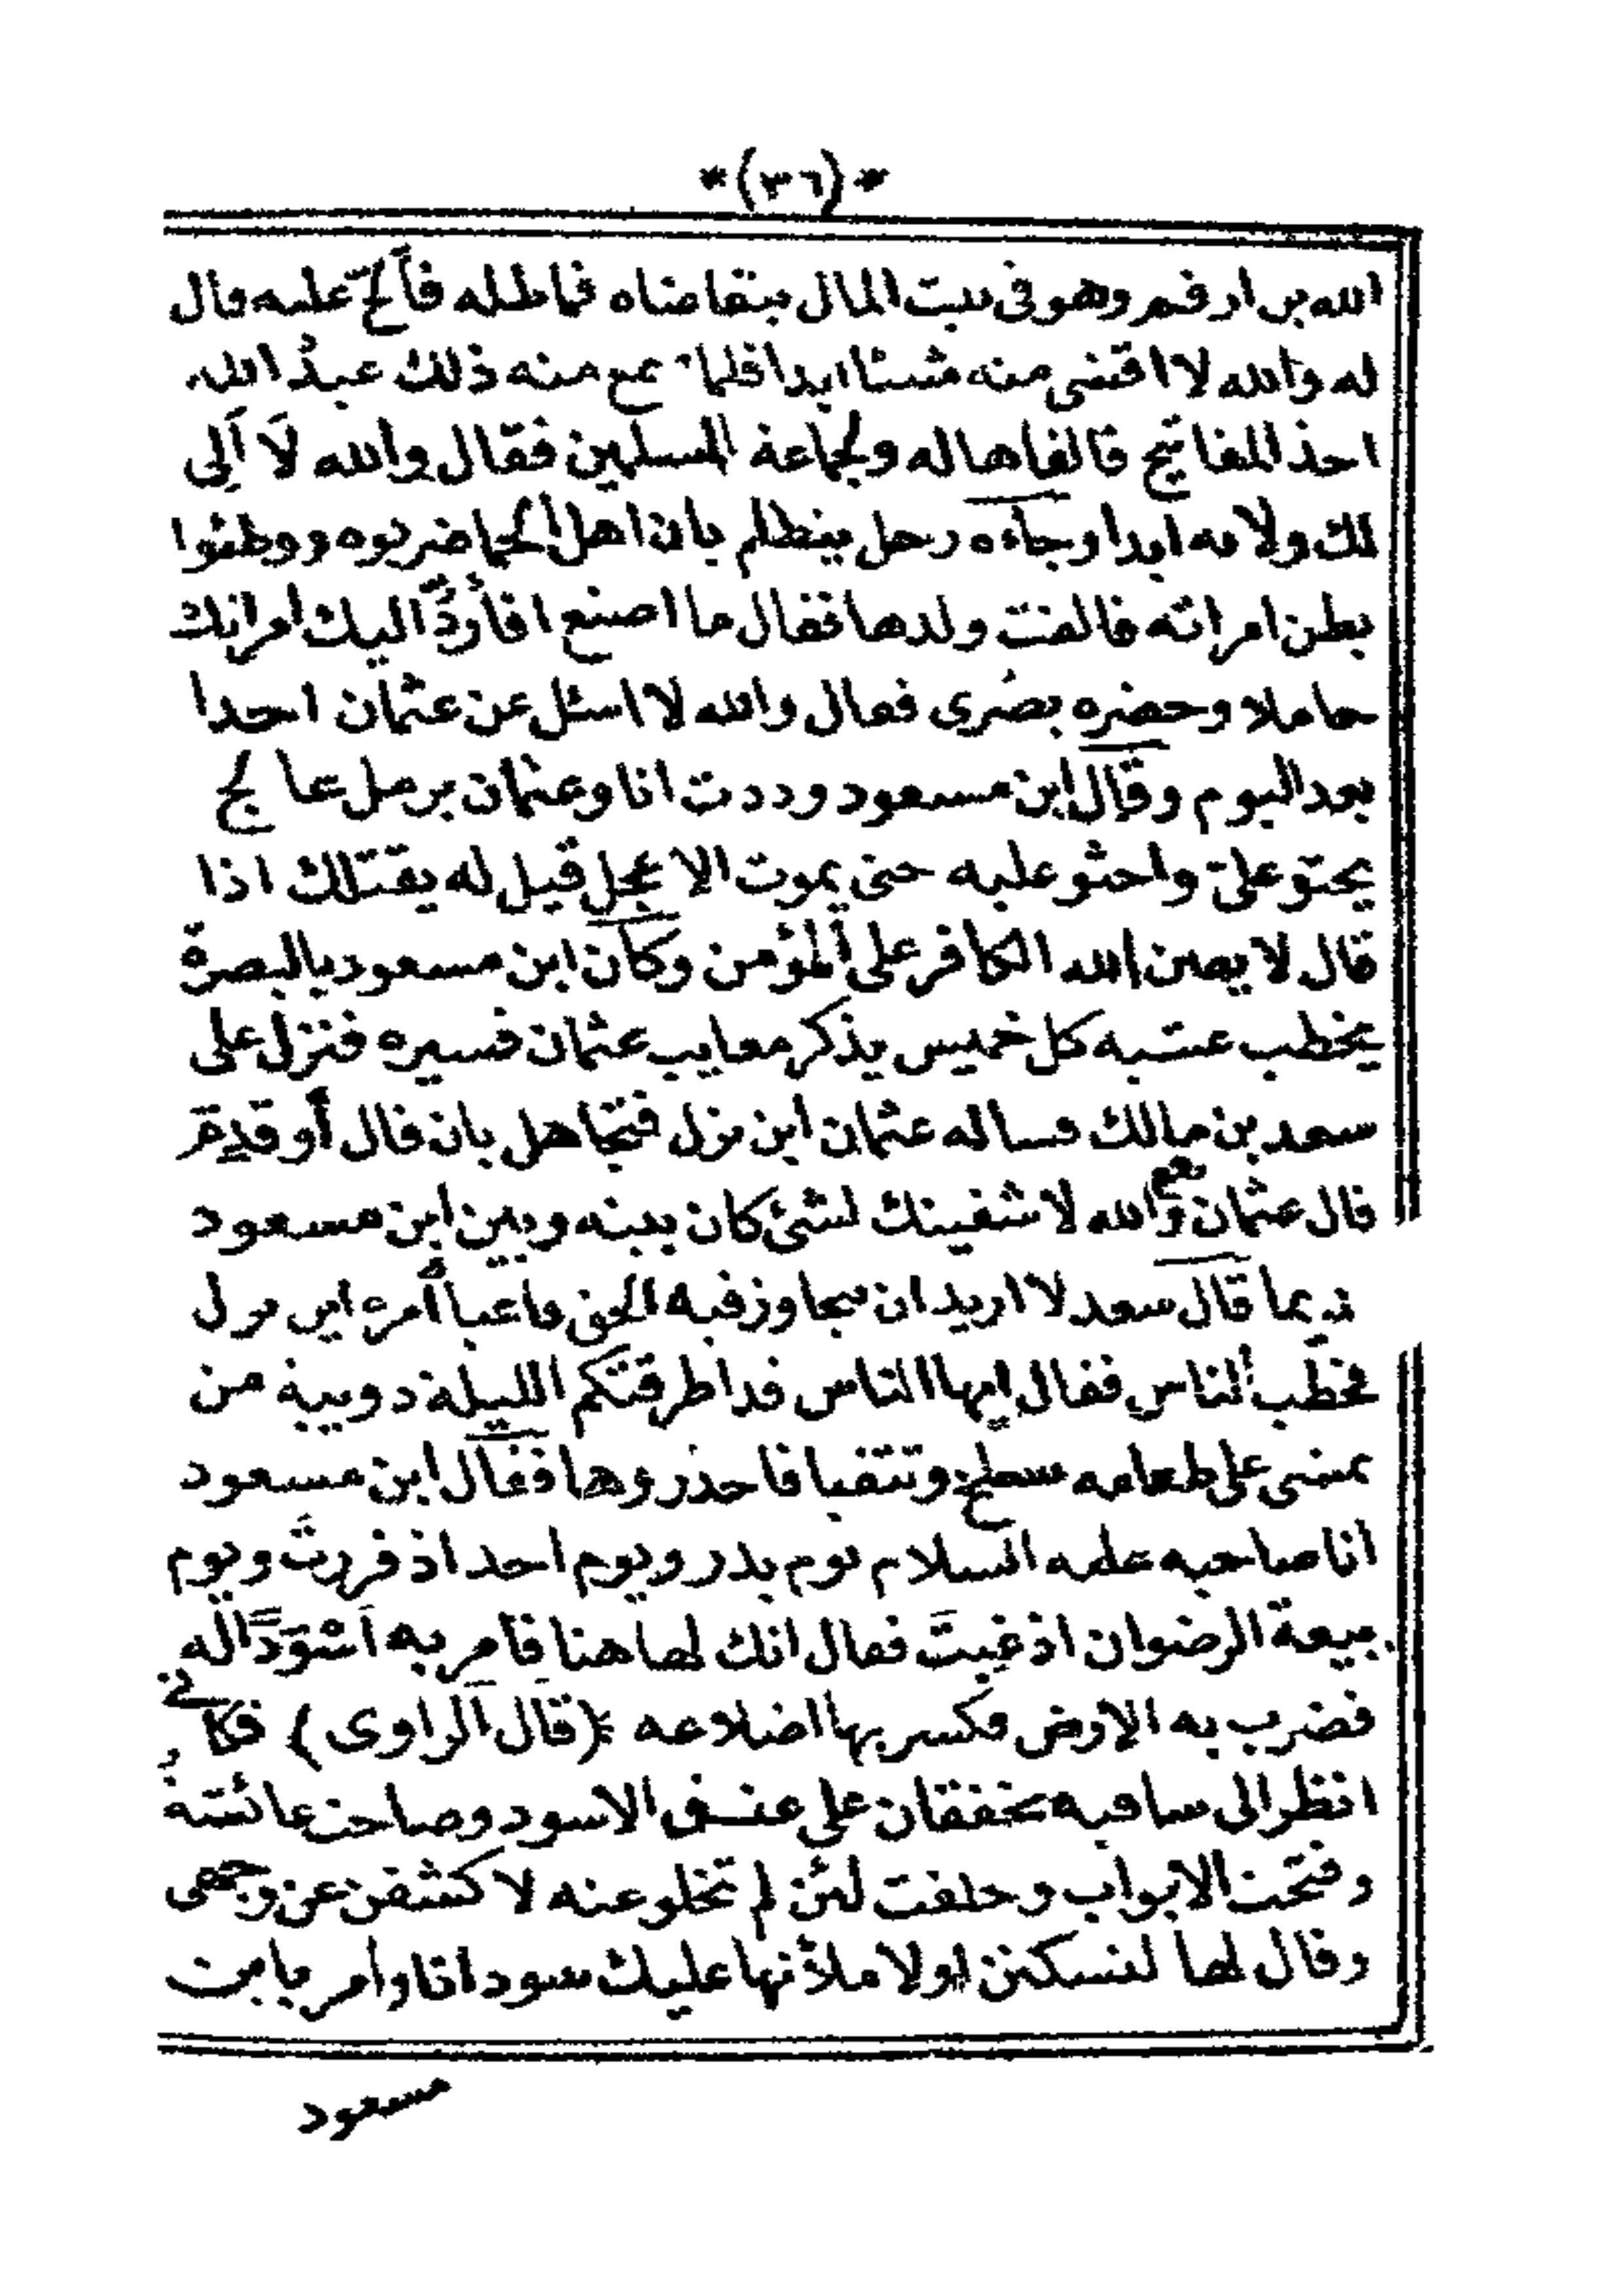 *(٣٦)*
الله بن ارقم وهو فى بيت المال يتقاضاه فماطله فألحّ عليه وقال
له والله لا اقتضى منه شيئا ابدا فلما سمع منه ذلك عبدُ الله
اخذ المفاتيح فالقاها له ولجماعة المسلمين فقال والله لَا اَلِى
لك ولا له ابدا وجاءه رجل يتظلم بان اهل الحيا ضربوه ووطئوا
بطن امراته فالقت ولدها فقال ما اصنع افأردُّ اليك امراتك
حاملا وحضره بصُرى فقال والله لا اسئل عن عثمان احدا
بعد اليوم وقال ابن مسعود وددت انا وعثمان برمل عالج
يحثو علىّ واحثو عليه حتى يموت الاعجل قيل له يقتلك اذا
قال لا يعين الله الكافر على المؤمن وكان ابن مسعود بالبصرة
يخطب عشيه كل خميس يذكر معايب عثمان فسيره فنزل على
سعد بن مالك فساله عثمان اين نزل فتجاهل بان قال أو قَدِمَ
قال عثمان نعم والله لاشفينك لشئ كان بينه وبين ابن مسعود
قديما قال سعد لا اريد ان يجاوز فيه الحق واعبأ أمرء اين نزل
فخطب الناس فقال ايها الناس قد اطرقتكم الليلة دويبة من
يمشى على طعامه يسلح وتتقيا فاحذروها فقال ابن مسعود
انا صاحبه عليه السلام يوم بدر ويوم احد اذ فررتَ ويوم
بيعة الرضوان اذ غِبتَ فقال انك لها هنا فامر به اسْوَدًا له
فضرب به الارض فكسر بها اضلاعه (قال الراوى) فكانى
انظر الى ساقيه تخفقان على عنق الاسود وصاحت عائشة
وفتحت الابواب وحلفت لئن لم تخلو عنه لاكشفن عن وجهى
وقال لها لتسكتن او لاملأنها عليك سودانا وامر بابن
مسعود